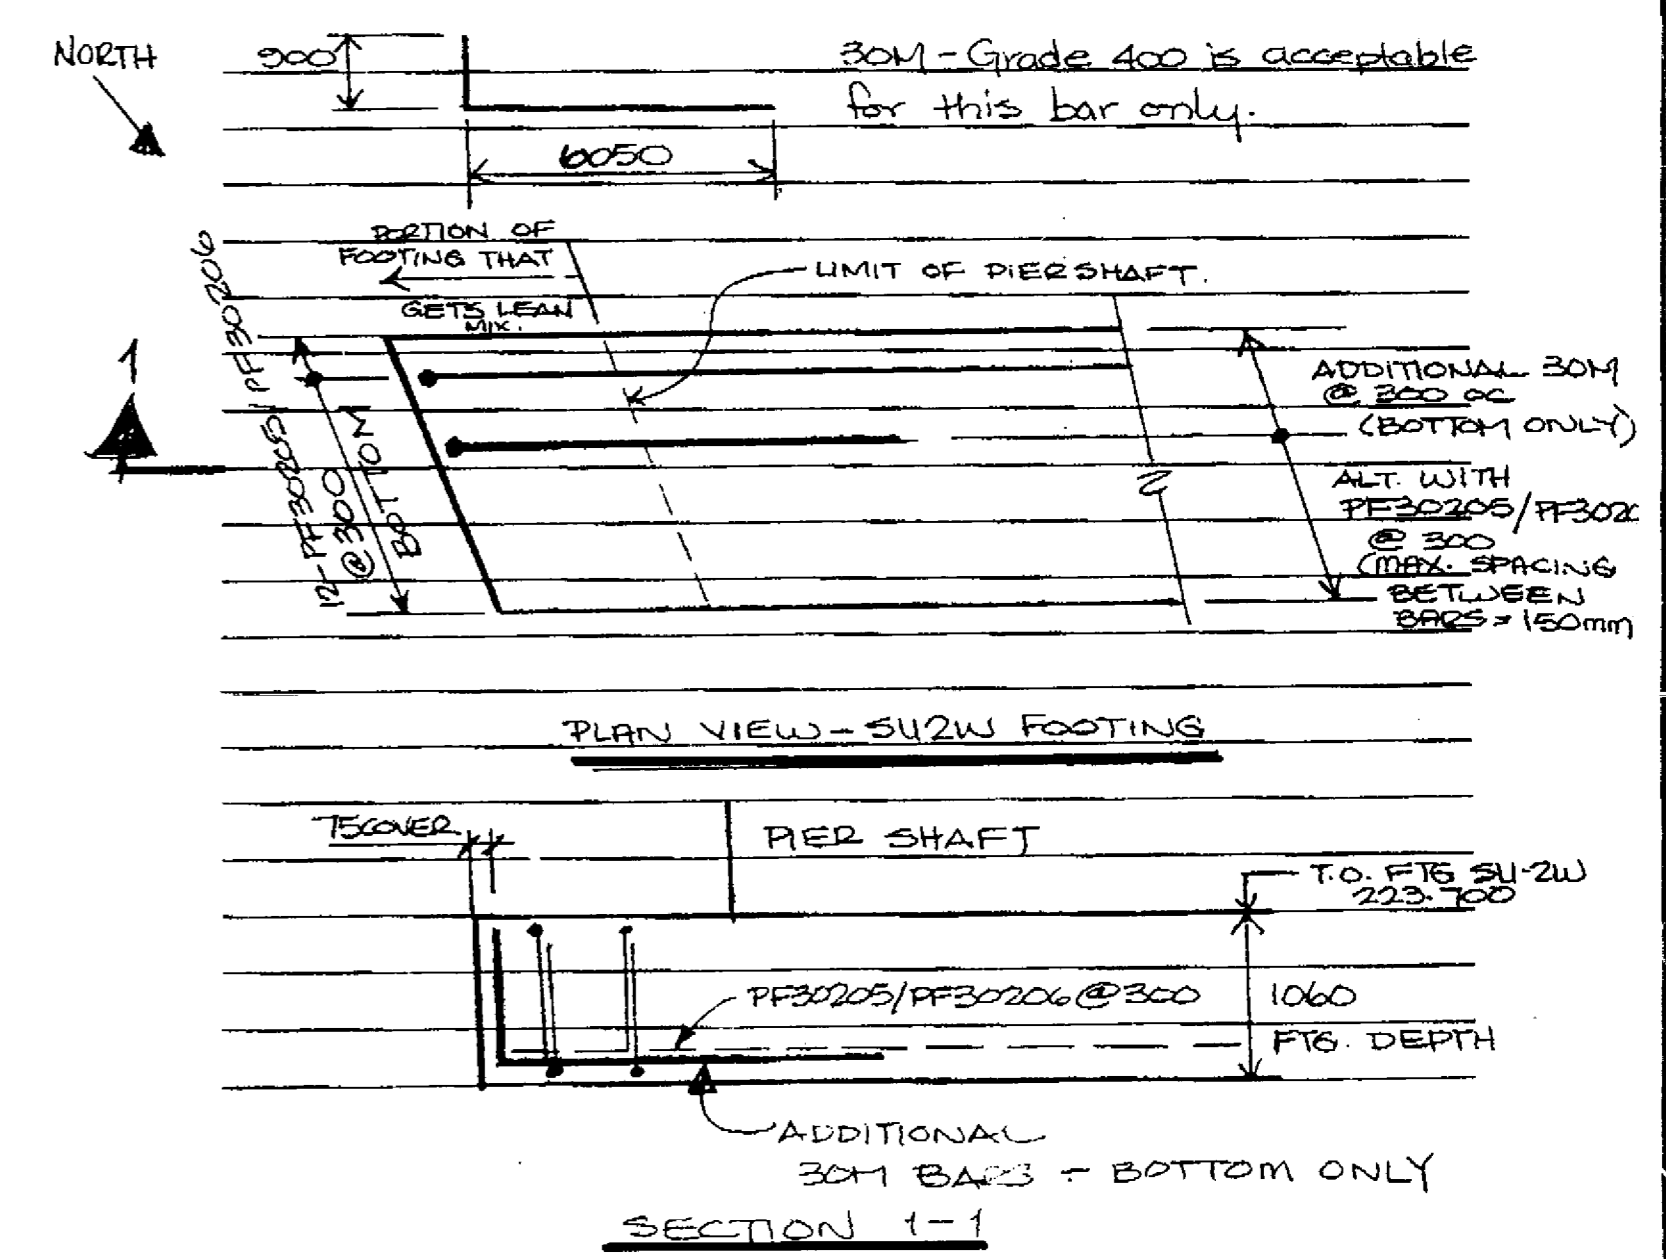 NORTH
900
30M - Grade 400 is acceptable
for this bar only.
6050
PORTION OF
FOOTING THAT
GETS LEAN
MIX.
LIMIT OF PIER SHAFT.
12-PF30205/PF30206
@ 300
BOTTOM
1
ADDITIONAL 30M
@ 300 OC
(BOTTOM ONLY)
ALT. WITH
PF30205/PF3020
@ 300
(MAX. SPACING
BETWEEN
BARS = 150mm
PLAN VIEW - SU2W FOOTING
75 COVER
PIER SHAFT
T.O. FTG SU-2W
223.700
PF30205/PF30206 @ 300
1060
FTG. DEPTH
ADDITIONAL
30M BARS - BOTTOM ONLY
SECTION 1-1